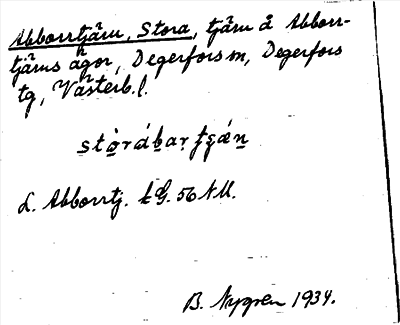 Abborrtjärn, Stora, tjärn å Abborr-
tjärns ägor, Degerfors sn, Degerfors
tg, Västerb. l.
stòrábar
L. Abborrtj. k G. 56 NV.
B. Nygren 1934.